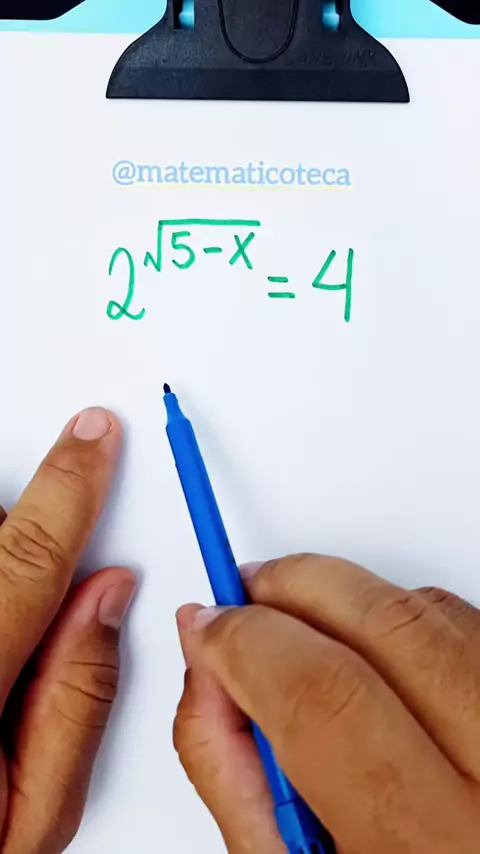 @matematicoteca
2^√(5-x) = 4